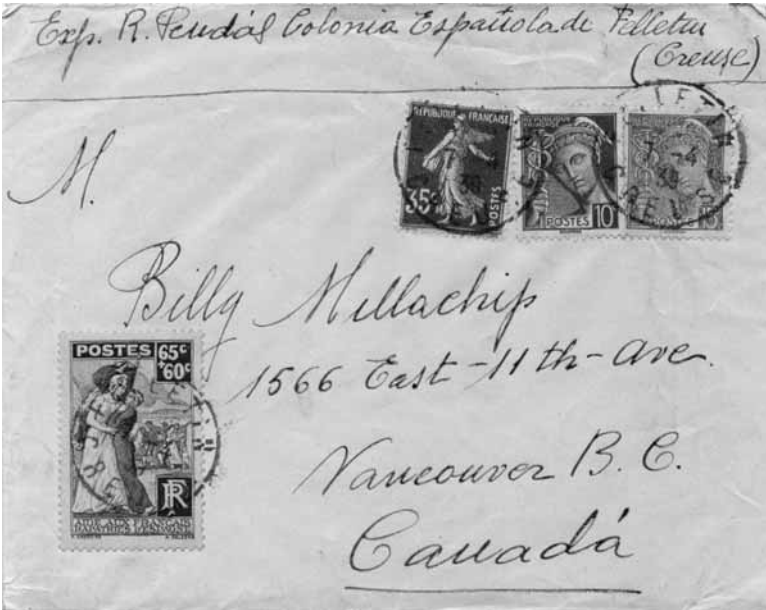 Exp. R. Pendás Colonia Española de Pelletin
(Creuse)
REPUBLIQUE FRANÇAISE
35c
POSTES
POSTES 10c
15
7 -4
39
CREUSE
M.
Billy Millachip
1566 East-11th-Ave.
Vancouver B. C.
Canadá
POSTES 65c
+60c
RF
AIDE AUX FRANÇAIS
RAPATRIÉS D'ESPAGNE